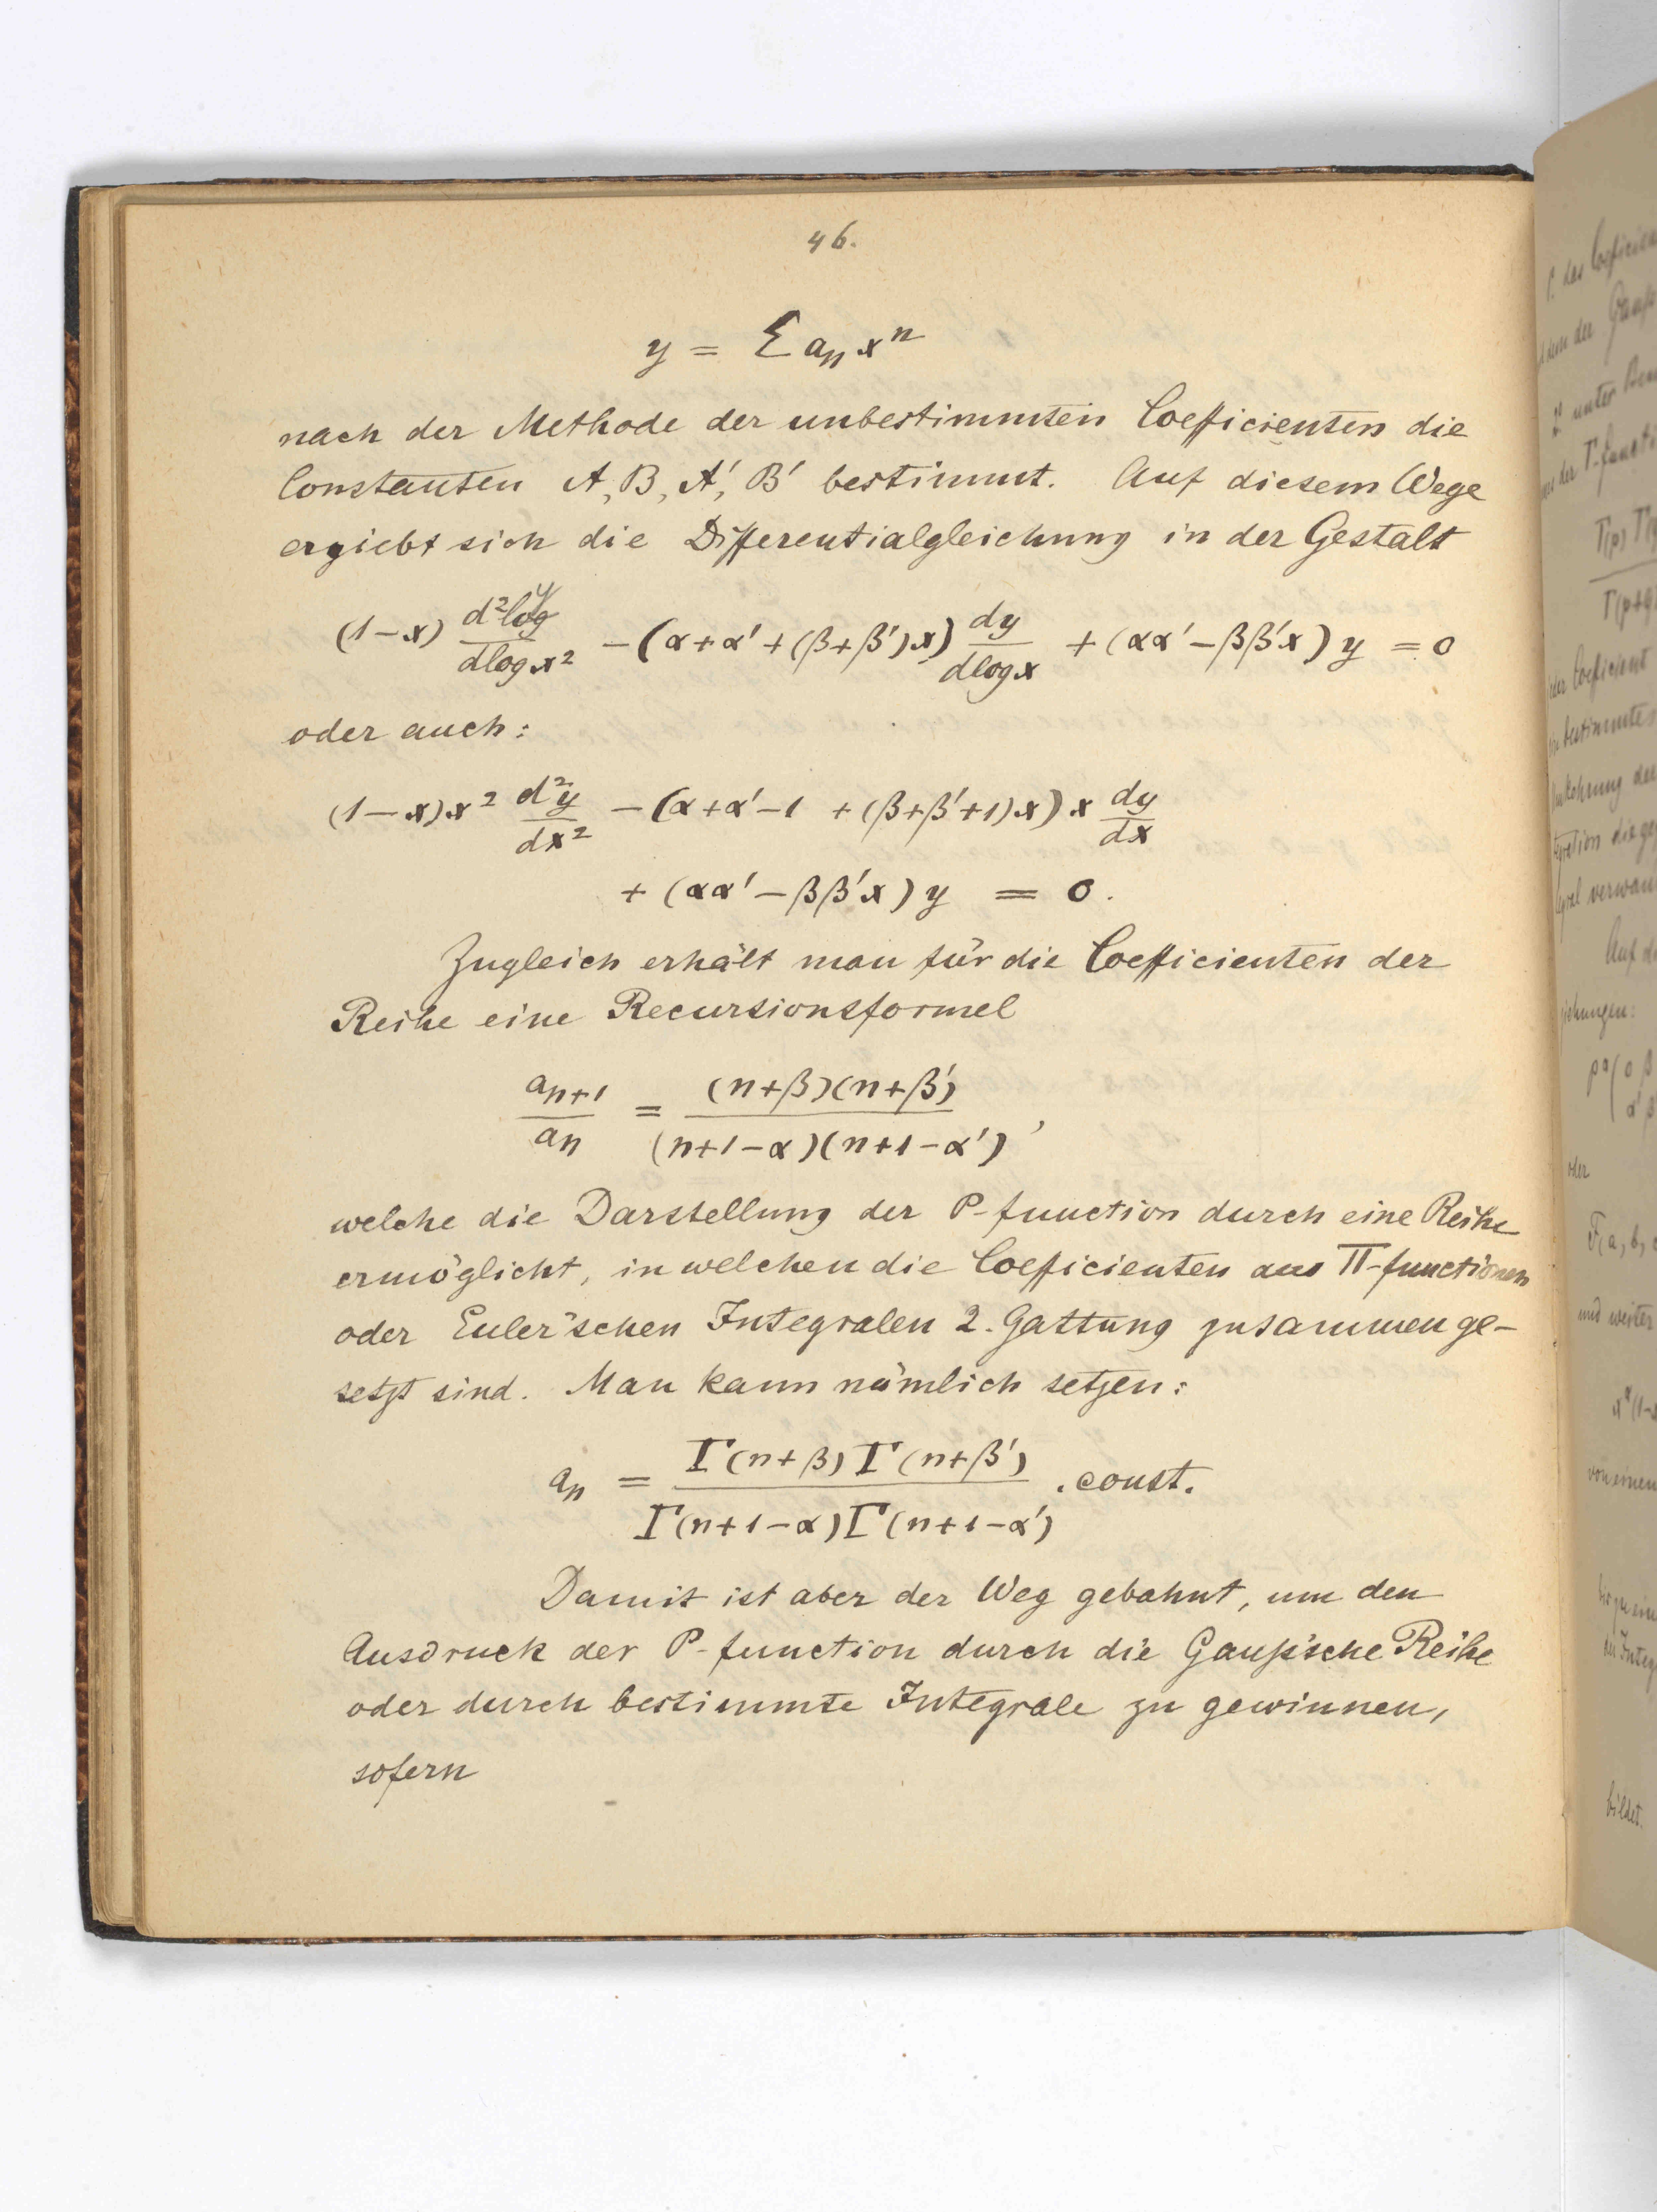 46.
y = Σ aₙ xⁿ
nach der Methode der unbestimmten Coefficienten die
Constanten A, B, A', B' bestimmt. Auf diesem Wege
ergiebt sich die Differentialgleichung in der Gestalt
(1-x) d²y/dlogx² - (α+α'+(β+β')x) dy/dlogx + (αα'-ββ'x) y = 0
oder auch:
(1-x)x² d²y/dx² - (α+α'-1 + (β+β'+1)x) x dy/dx
+ (αα'-ββ'x) y = 0.
Zugleich erhält man für die Coefficienten der
Reihe eine Recursionsformel
aₙ₊₁/aₙ = (n+β)(n+β')/(n+1-α)(n+1-α'),
welche die Darstellung der P-function durch eine Reihe
ermöglicht, in welchen die Coefficienten aus Π-functionen
oder Euler'schen Integralen 2. Gattung zusammenge-
setzt sind. Man kann nämlich setzen:
aₙ = Γ(n+β)Γ(n+β')/Γ(n+1-α)Γ(n+1-α') . const.
Damit ist aber der Weg gebahnt, um den
Ausdruck der P-function durch die Gauß'sche Reihe
oder durch bestimmte Integrale zu gewinnen,
sofern
der Gauß
unter
der Γ-functi
Γ(p) Γ(
Γ(p+q
Coefficient
bestimmte
verwan
Auf d
oder
F(a, b, c
und weiter
von einem
bildet.